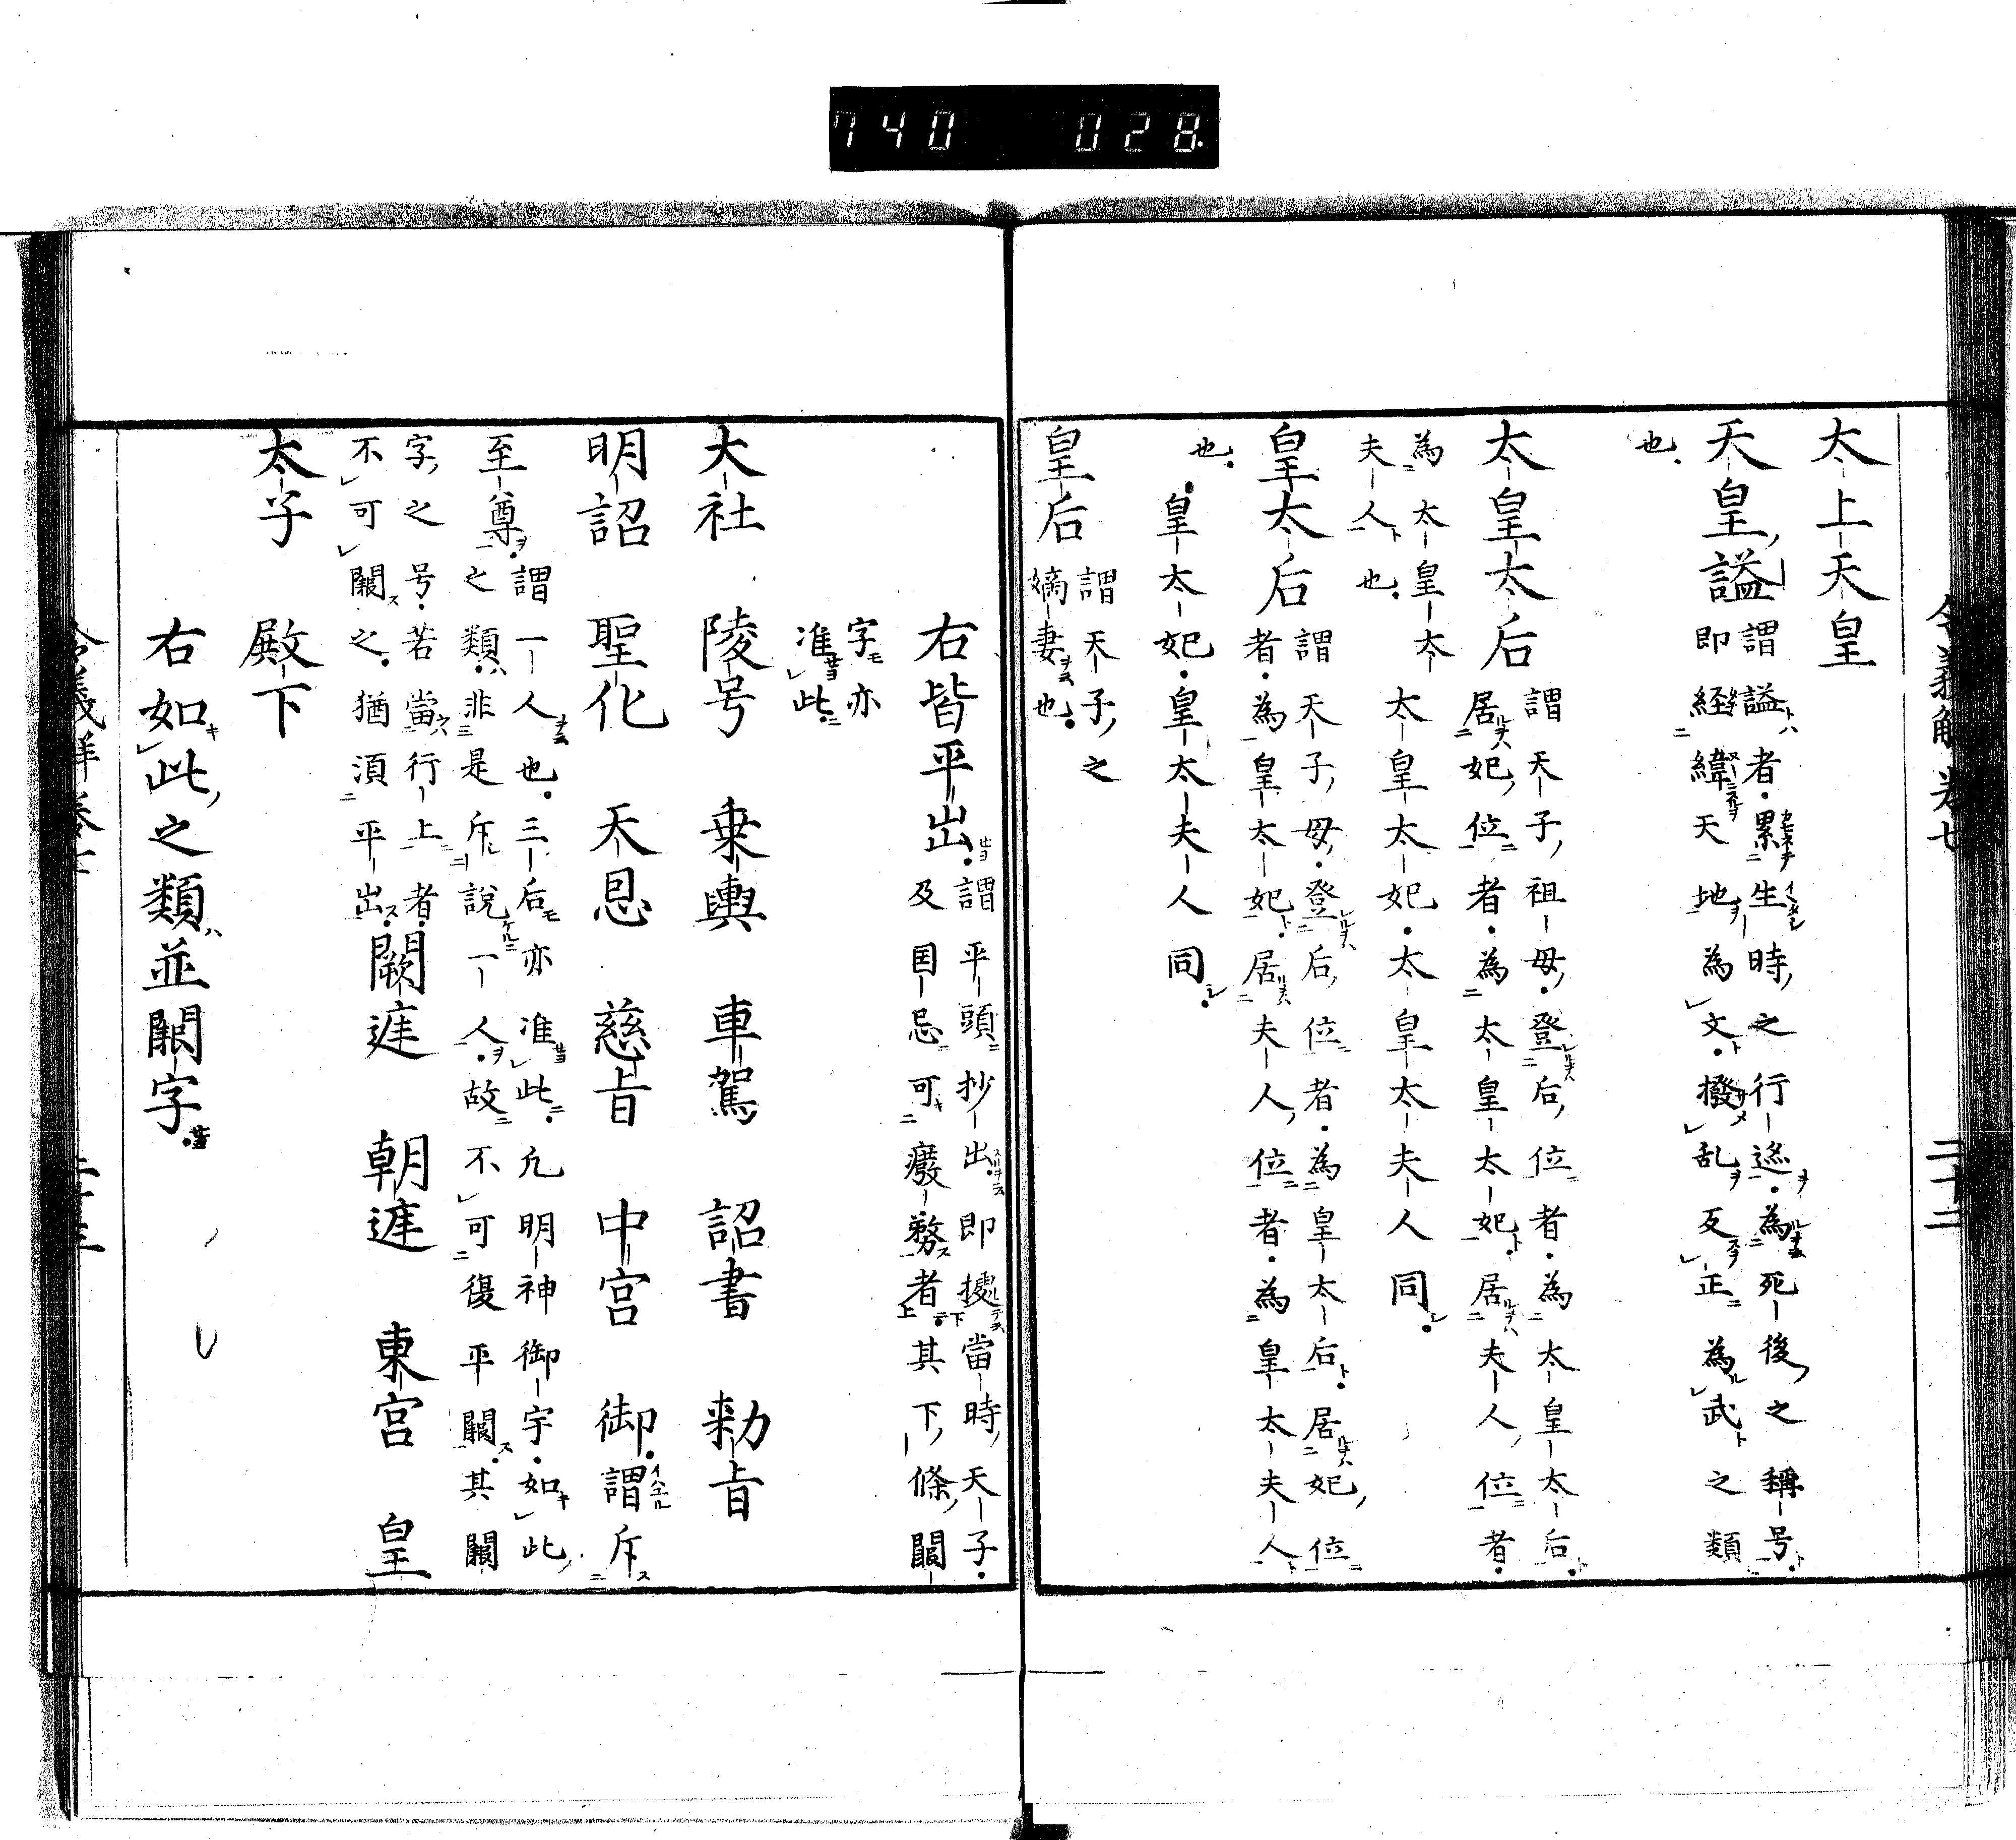 740 028
令義解 卷七 二十二
太上天皇
天皇謚謂謚者累生時之行迹為死後之稱号
即経緯天地為文撥乱反正為武之類
也
太皇太后謂天子祖母登后位者為太皇太后
居妃位者為太皇太妃居夫人位者
為太皇太
夫人也
太皇太妃太皇太夫人同
皇太后謂天子母登后位者為皇太后居妃位
者為皇太妃居夫人位者為皇太夫人
也
皇太妃皇太夫人同
皇后謂天子之
嫡妻也
右皆平出謂平頭抄出即擾當時天子
及国忌可癈務者其下條闕
字亦
准此
大社 陵号 乗輿 車駕 詔書 勅旨
明詔 聖化 天恩 慈旨 中宮 御謂斥
至尊謂一人也三后亦准此凢明神御宇如此
之類非是斥說一人故不可復平闕其闕
字之号若當行上者
不可闕之猶湏平出闕庭 朝庭 東宮 皇
太子 殿下
右如此之類並闕字